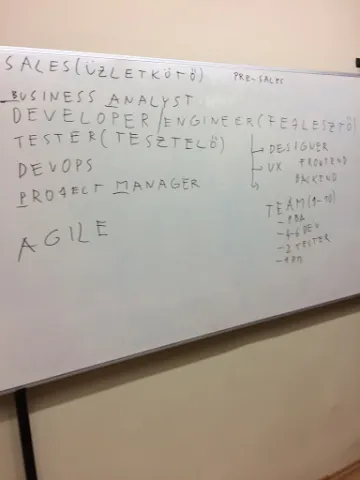 SALES (ÜZLETKÖTŐ) PRE-SALES
BUSINESS ANALYST
DEVELOPER/ENGINEER (FEJLESZTŐ)
DESIGNER
TESTER (TESZTELŐ)
UX FRONTEND
BACKEND
DEVOPS
PROJECT MANAGER
TEAM (9-10)
- 1 BA
- 4-6 DEV
- 2 TESTER
- 1 PM
AGILE